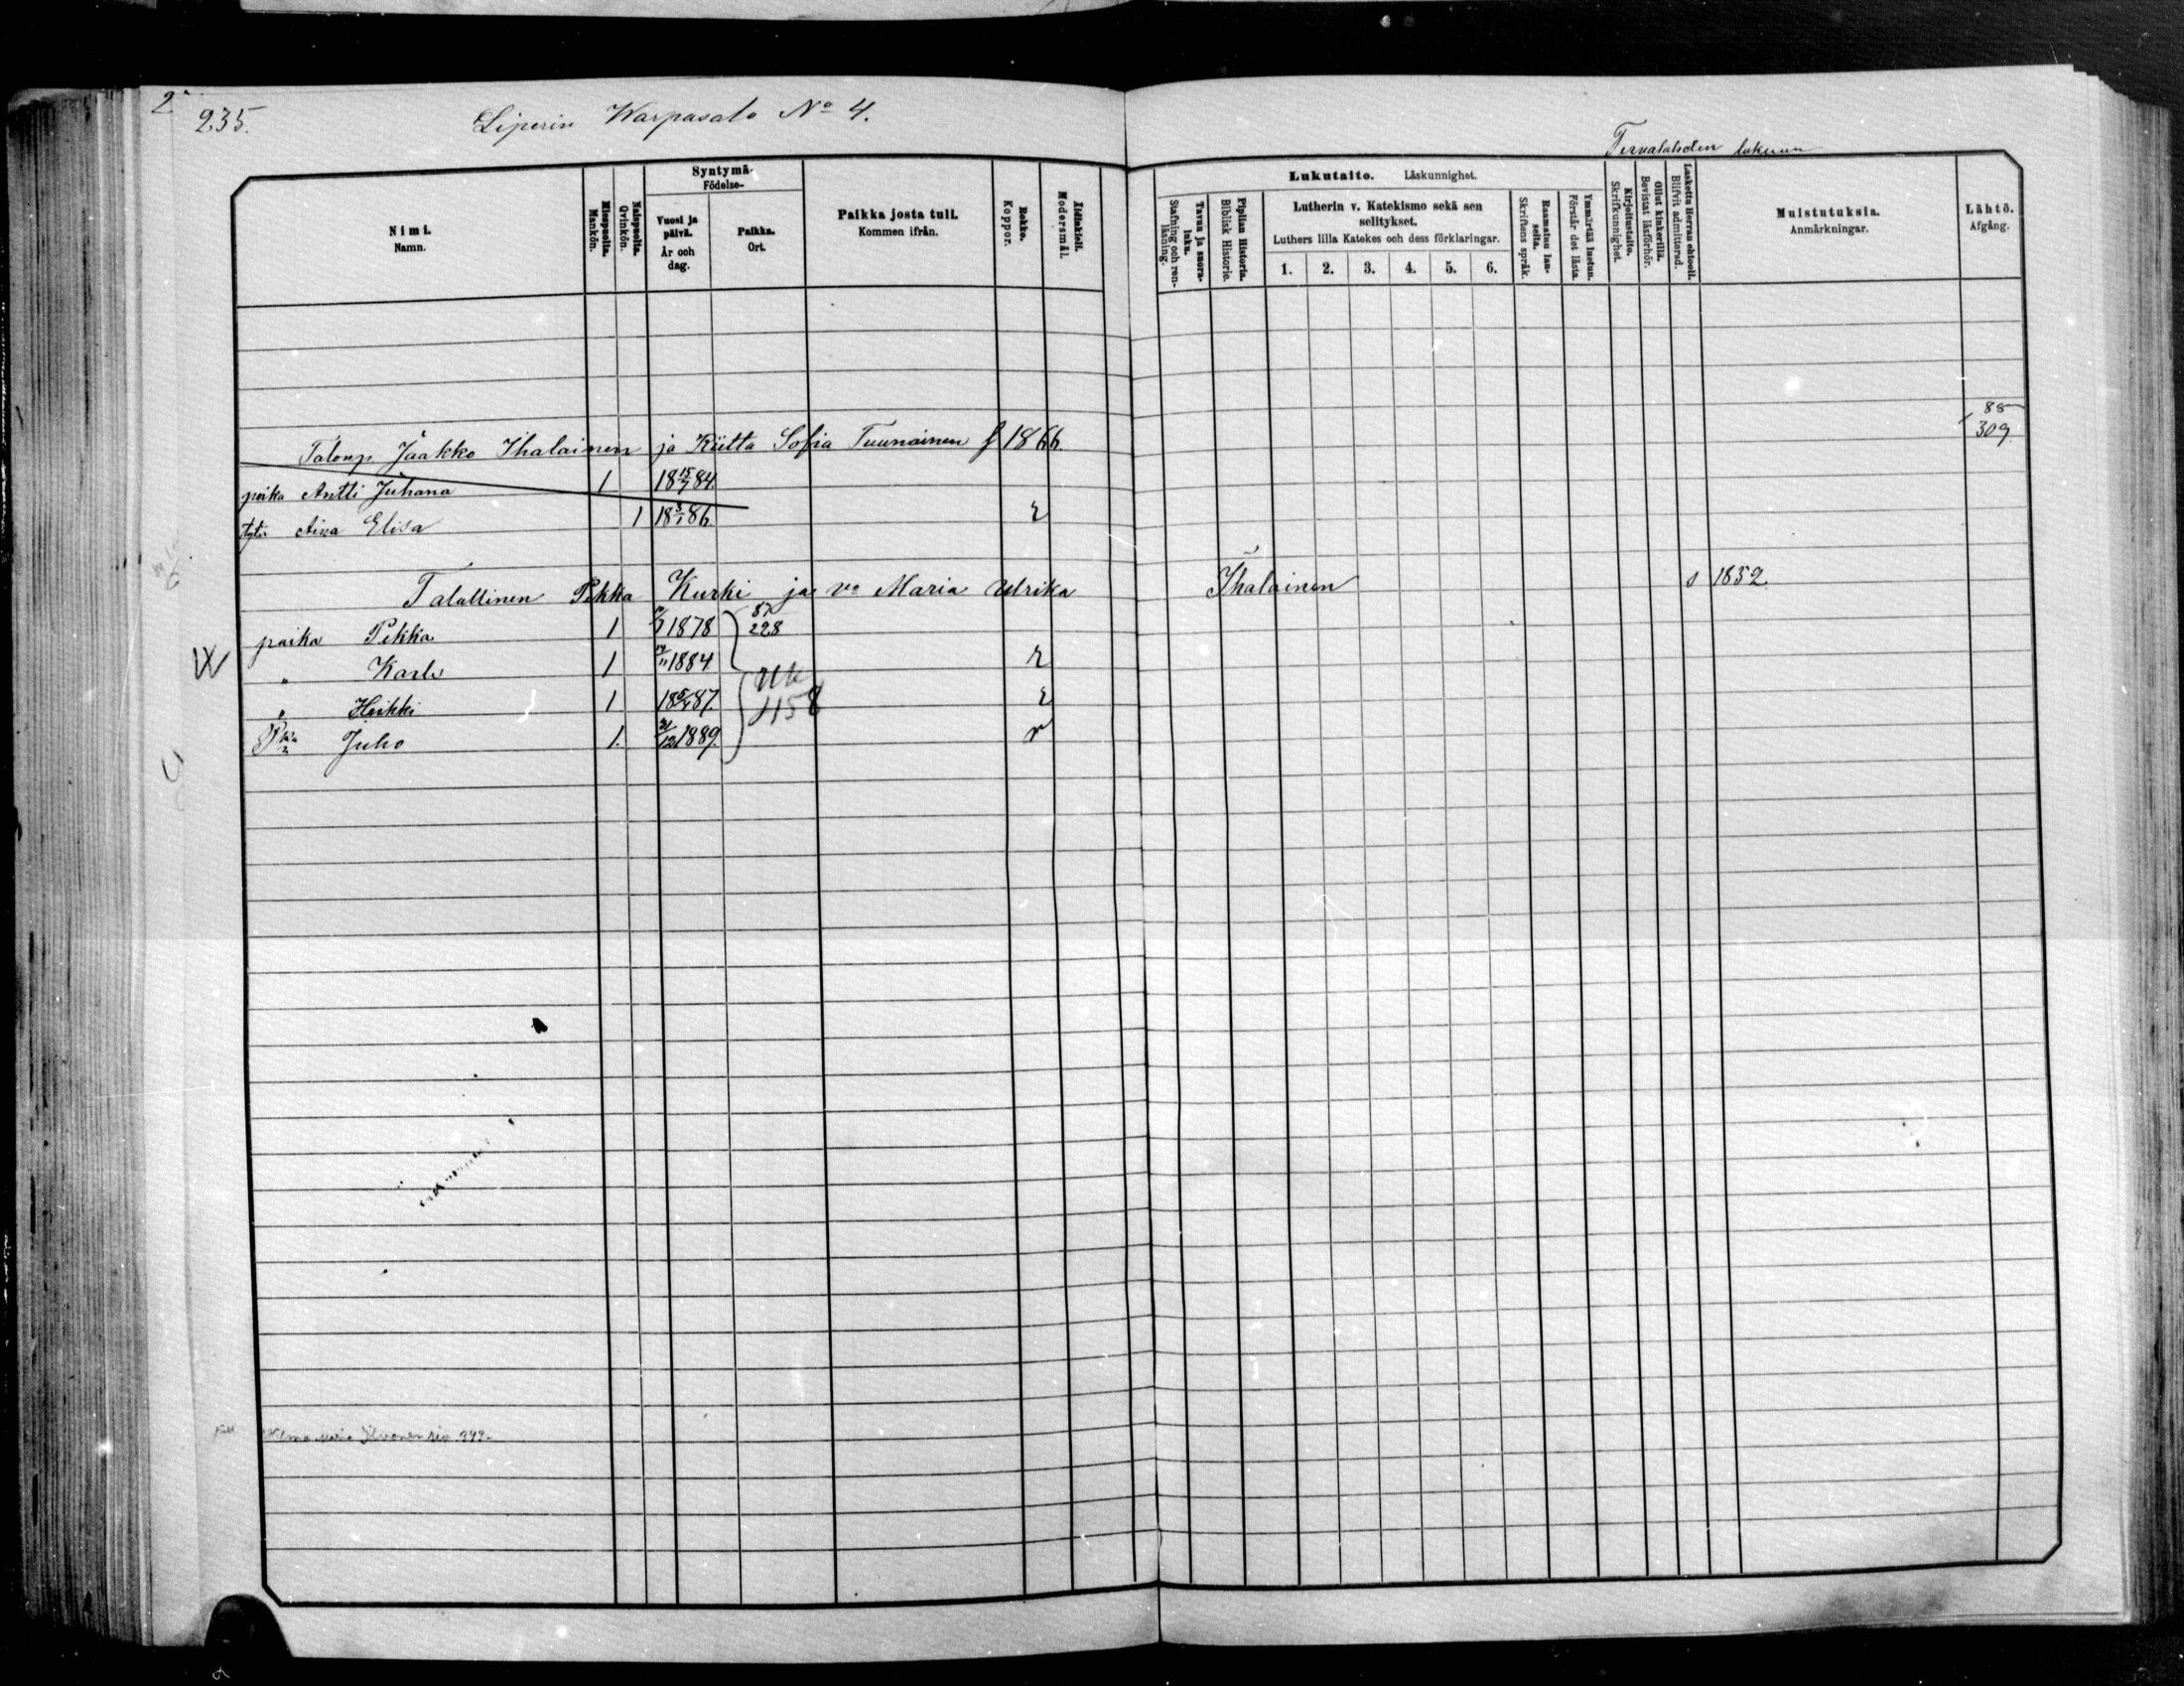 235.
Liperin Warpasalo No 4.
Tervalahden lukuun
Nimi.
Namn.
Miespuolia.
Mankön.
Naispuolia.
Qvinkön.
Syntymä-
Födelse-
Vuosi ja päivä.
År och dag.
Paikka.
Ort.
Paikka josta tuli.
Kommen ifrån.
Rokko.
Koppor.
Äidinkieli.
Modersmål.
Lukutaito. Läskunnighet.
Tavuu ja suora-luku.
Stafning och ren-läsning.
Piplian Historia.
Biblisk Historie.
Lutherin v. Katekismo sekä sen selitykset.
Luthers lilla Katekes och dess förklaringar.
1. 2. 3. 4. 5. 6.
Raamatun lau-seita.
Skriftens språk.
Ymmärtää luetun.
Förstår det lästa.
Kirjoitustaito.
Skrifkunnighet.
Ollut kinkerillä.
Bevistat läsförhör.
Laskettu Herran ehtooll.
Blifvit admitterad.
Muistutuksia.
Anmärkningar.
Lähtö.
Afgång.
88
309
Talonp. Jaakko Ihalainen ja Riitta Sofia Tuunainen f 1866.
poika Antti Juhana 1 18 15/7 84
tytär Aina Elisa 1 18 3/1 86 r
Talallinen Pekka Kurki ja vo Maria Ulrika Ihalainen s 1852.
poika Pekka 1 1878 87 228
" Karls 1 1884 r
" Heikki 1 1887 Uk 1158 r
Pka Juho 1. 31/12 1889. r